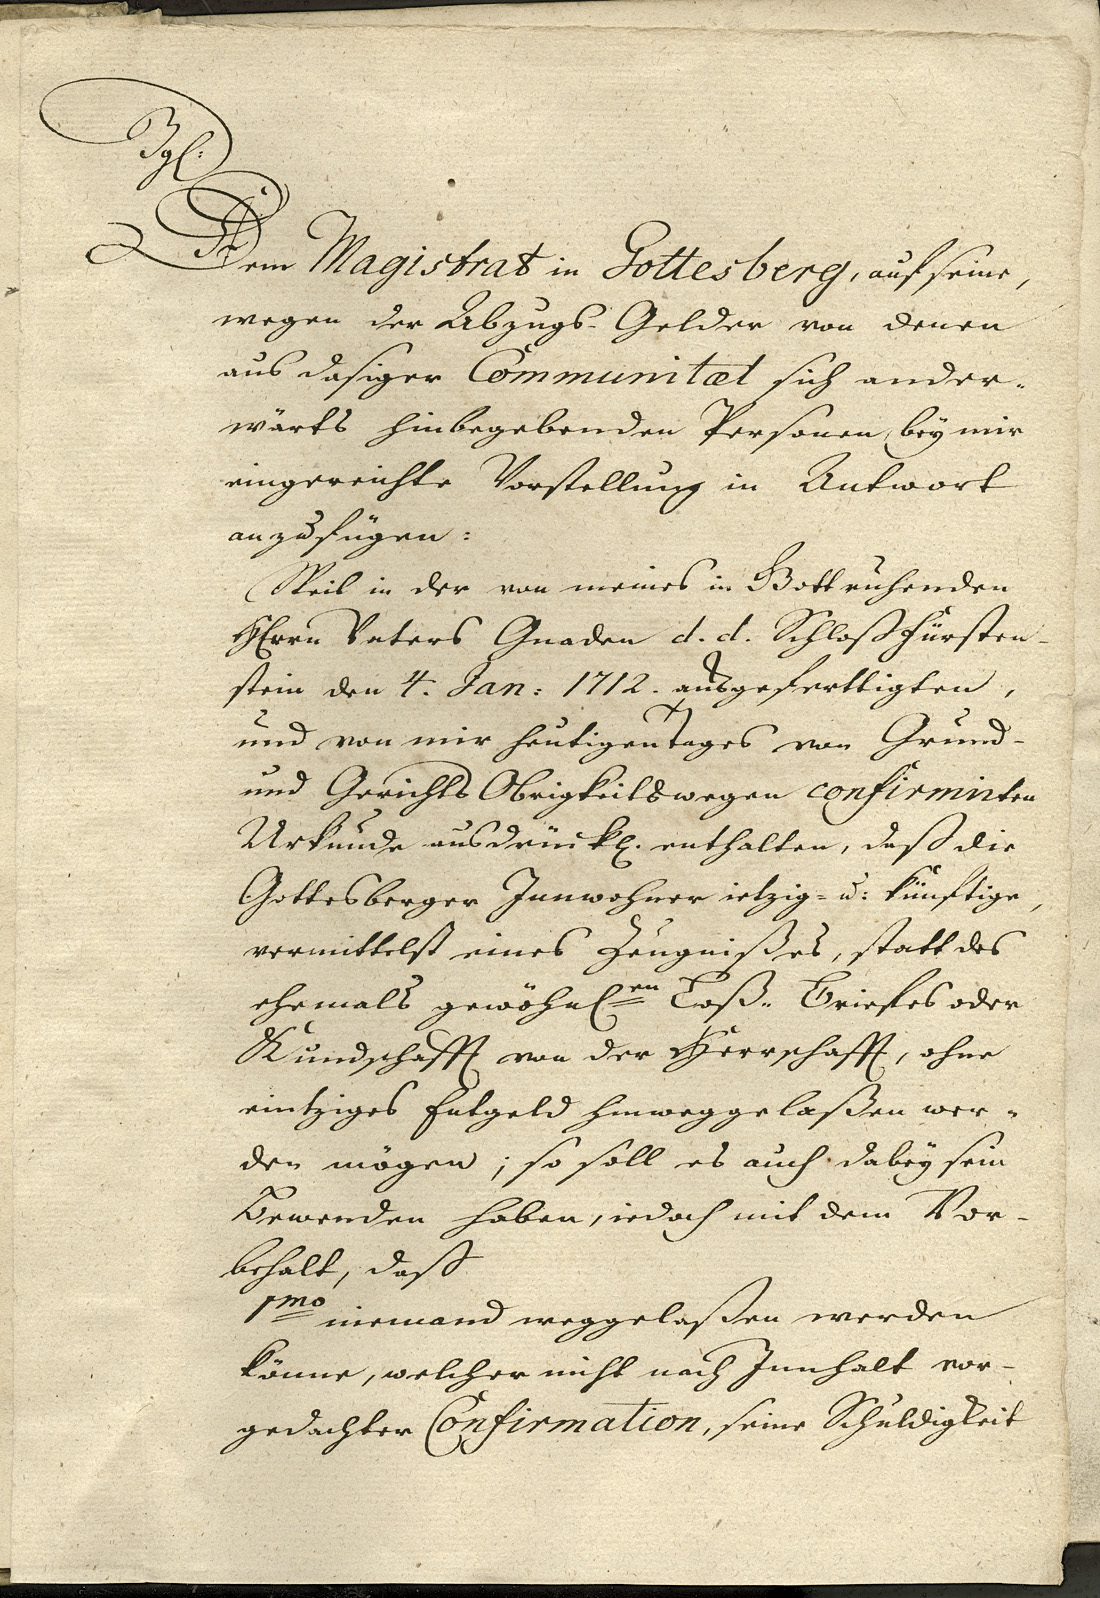 Dem Magistrat in Gottesberg, auf seine,
wegen der Abzugs-Gelder von denen
aus dasiger Communitæt sich ander-
wärts hinbegebenden Personen, bey mir
eingereichte Vorstellung in Antwort
anzufügen:
Weil in der von meines in Gott ruhenden
HErrn Vaters Gnaden d. d. Schloß Fürsten-
stein den 4. Jan: 1712. ausgeferttigten,
und von mir heutigen Tages von Grund-
und Gerichts Obrigkeitswegen confirmirten
Urkunde ausdrückl. enthalten, daß die
Gottesberger Innwohner ietzig- u: künftige,
vermittelst eines Zeugnißes, statt des
ehemals gewöhnl.en Loß-Briefes oder
Kundschafft von der Herrschafft, ohne
eintziges Entgeld hinweggelaßen wer-
den mögen; so soll es auch dabey sein
Bewenden haben, iedoch mit dem Vor-
behalt, daß
1mo niemand weggelaßen werden
könne, welcher nicht nach Innhalt vor-
gedachter Confirmation, seine Schuldigkeit